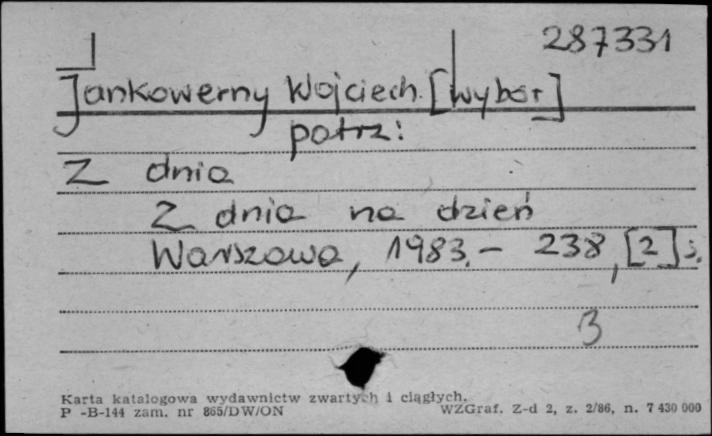 287331
Jankowerny Wojciech. [wybór]
patrz:
Z dnia
Z dnia na dzień
Warszawa, 1983. - 238, [2] s.
3
Karta katalogowa wydawnictw zwartych i ciągłych.
P -B-144 zam. nr 865/DW/ON WZGraf. Z-d 2, z. 2/86, n. 7 430 000